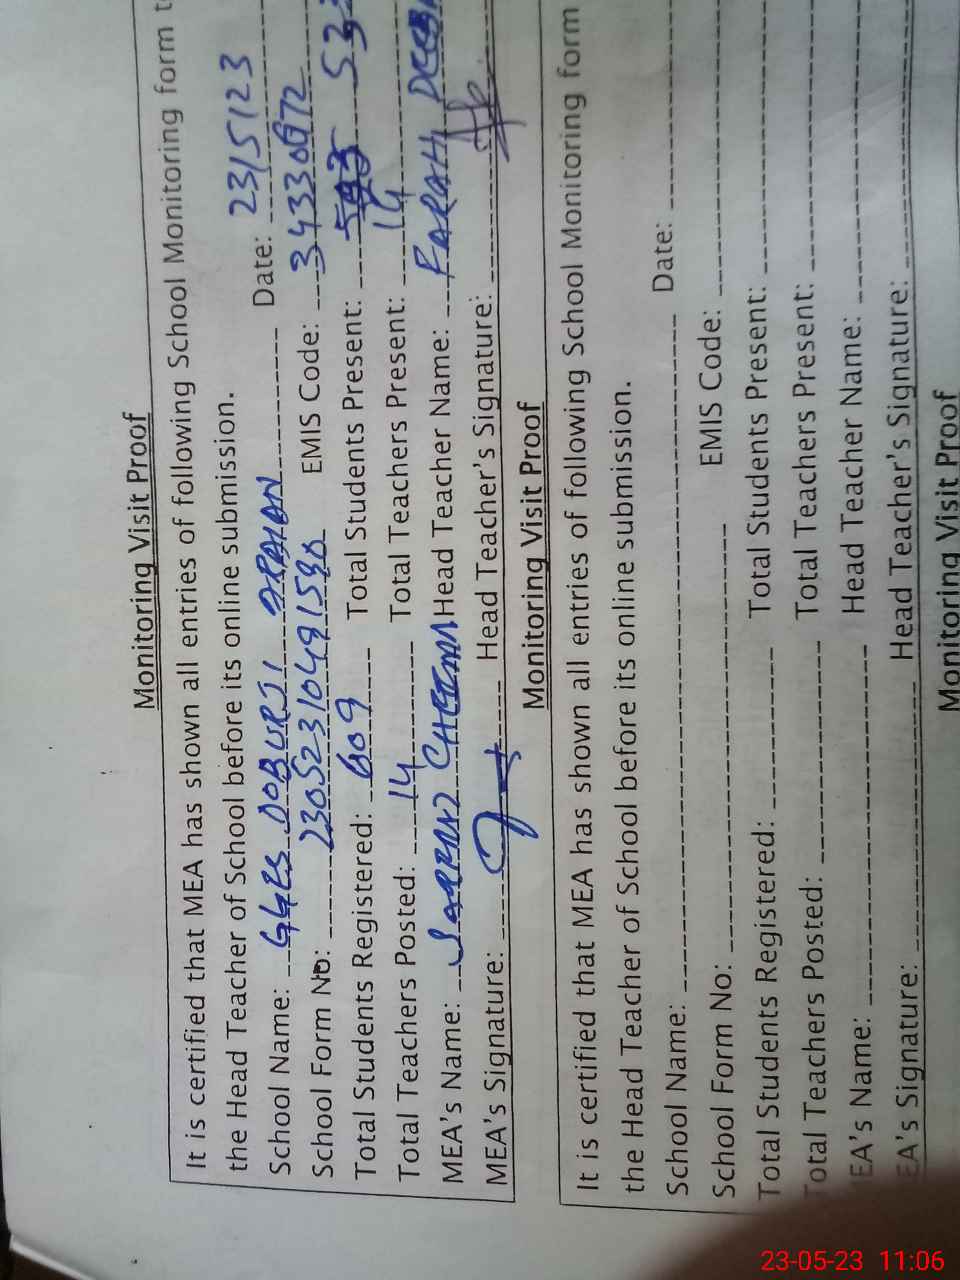 Monitoring Visit Proof
It is certified that MEA has shown all entries of following School Monitoring form t
the Head Teacher of School before its online submission.
School Name: GGES DOBURJI ARAIAN Date: 23/5/23
School Form No: 230523104915 EMIS Code: 34330072
Total Students Registered: 609 Total Students Present: 523
Total Teachers Posted: 14 Total Teachers Present: 14
MEA's Name: CHEEMA Head Teacher Name: FARAH DEEBA
MEA's Signature: Head Teacher's Signature:
Monitoring Visit Proof
It is certified that MEA has shown all entries of following School Monitoring form
the Head Teacher of School before its online submission.
School Name: Date:
School Form No: EMIS Code:
Total Students Registered: Total Students Present:
Total Teachers Posted: Total Teachers Present:
EA's Name: Head Teacher Name:
EA's Signature: Head Teacher's Signature:
Monitoring Visit Proof
23-05-23 11:06